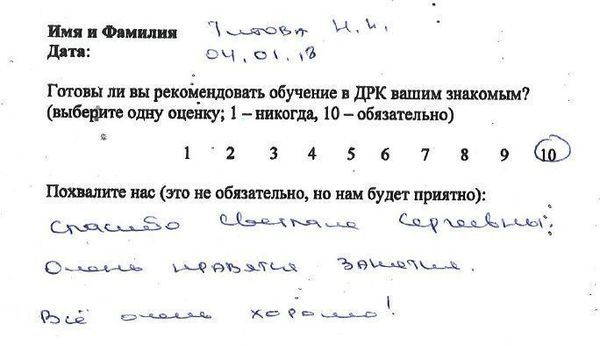 Имя и Фамилия Титова Н.И.
Дата: 04.01.18
Готовы ли вы рекомендовать обучение в ДРК вашим знакомым?
(выберите одну оценку; 1 – никогда, 10 – обязательно)
1 2 3 4 5 6 7 8 9 10
Похвалите нас (это не обязательно, но нам будет приятно):
Спасибо Светлане Сергеевны.
Очень нравятся занятия.
Всё очень хорошо!